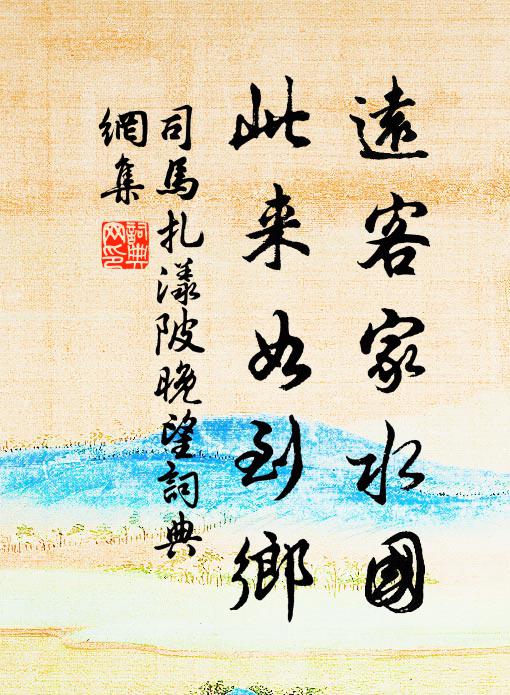 遠客家水國
此来如到鄉
司馬扎漾陂晚望詞典
網集
詞典
网印